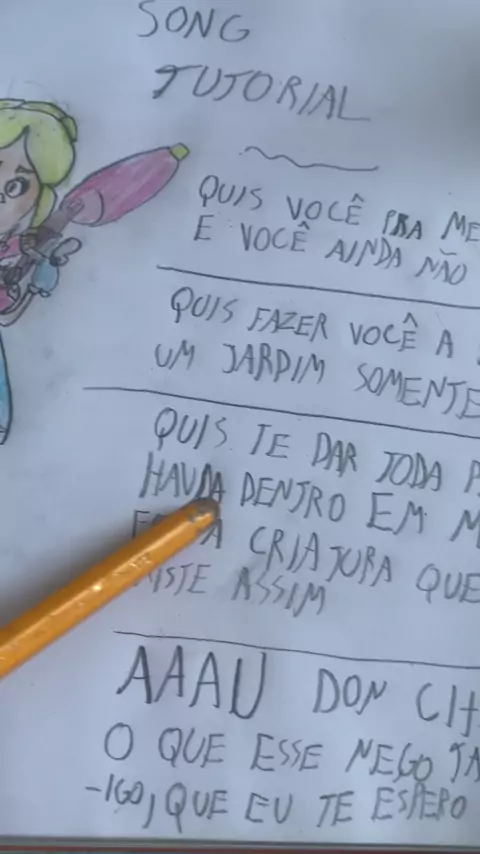 SONG
TUTORIAL
QUIS VOCÊ PRA ME
E VOCÊ AINDA NÃO
QUIS FAZER VOCÊ A
UM JARDIM SOMENTE
QUIS TE DAR TODA
HAVIA DENTRO EM
CRIATURA QUE
ASSIM
AAAU DON
O QUE ESSE NEGO
-IGO, QUE EU TE ESPERO